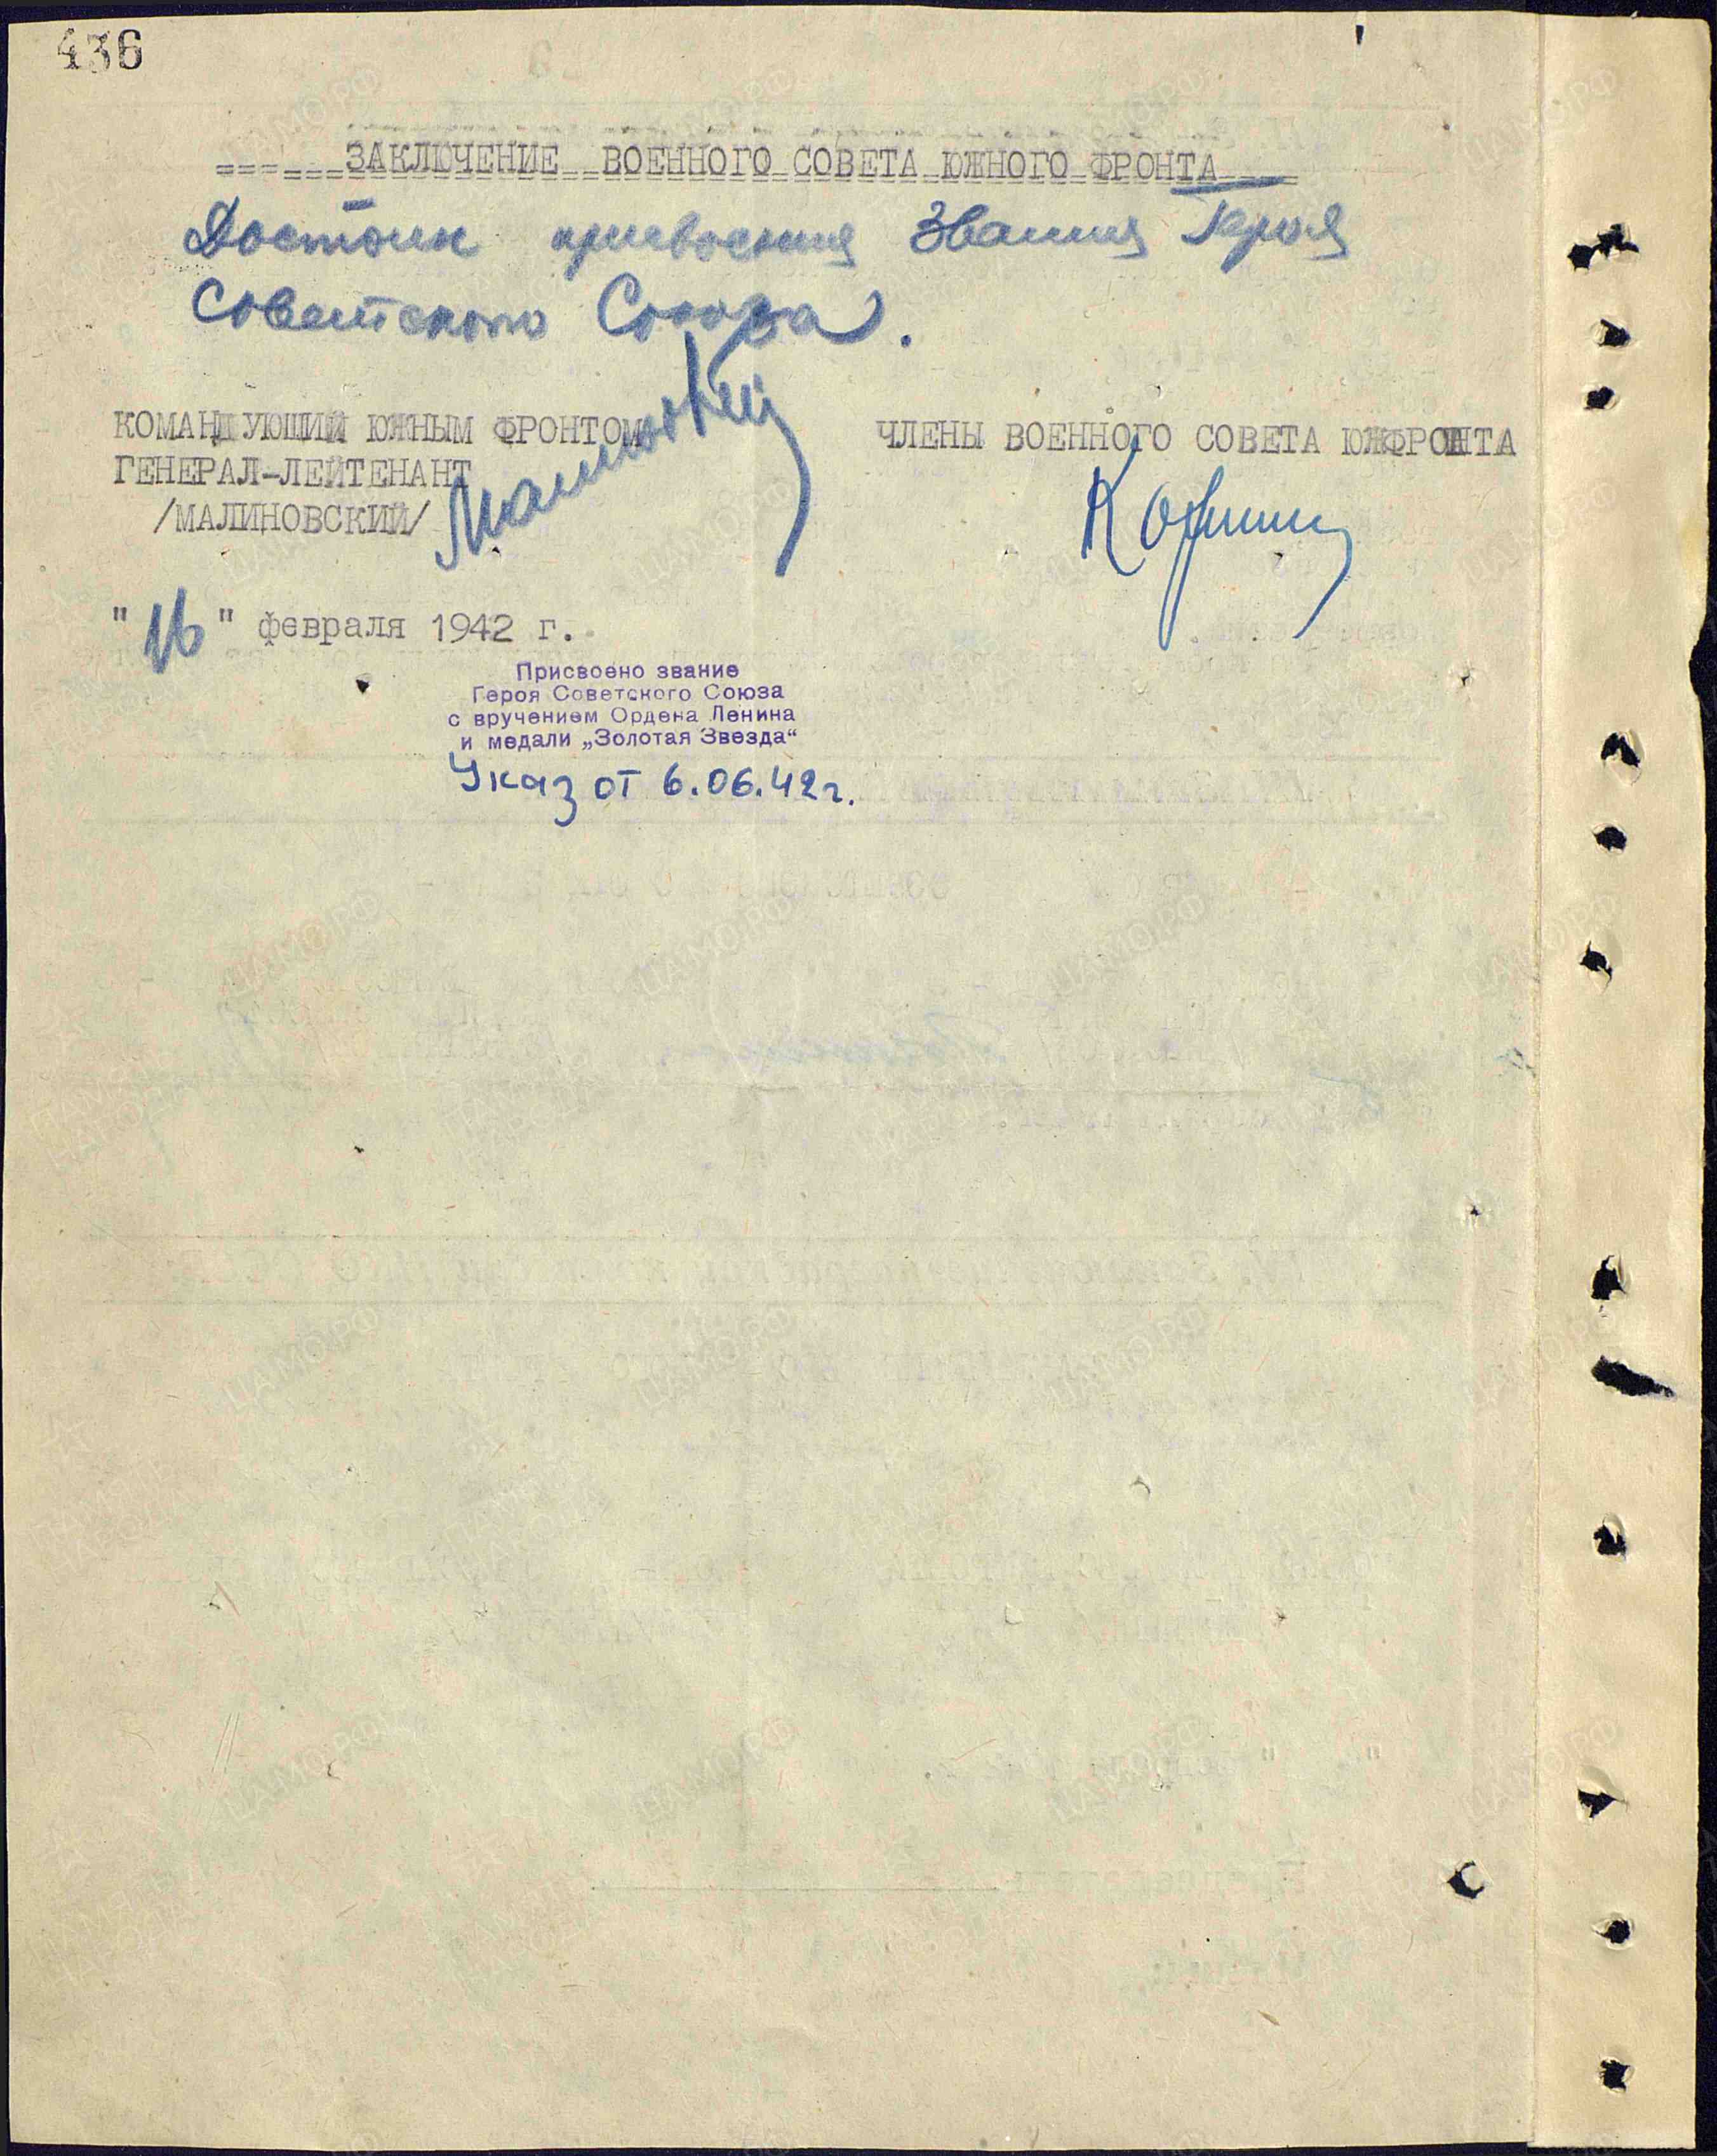 436
ЗАКЛЮЧЕНИЕ ВОЕННОГО СОВЕТА ЮЖНОГО ФРОНТА
Достоин присвоения Звания Героя
Советского Союза.
КОМАНДУЮЩИЙ ЮЖНЫМ ФРОНТОМ
ГЕНЕРАЛ-ЛЕЙТЕНАНТ
/МАЛИНОВСКИЙ/
ЧЛЕНЫ ВОЕННОГО СОВЕТА ЮЖФРОНТА
"16" февраля 1942 г.
Присвоено звание
Героя Советского Союза
с вручением Ордена Ленина
и медали „Золотая Звезда“
Указ от 6.06.42г.